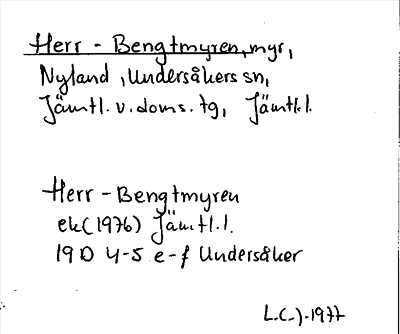 Herr-Bengtmyren, myr,
Nyland, Undersåkers sn,
Jämtl. v. doms. tg, Jämtl. l.
Herr-Bengtmyren
ek (1976) Jämtl. l.
19D 4-5 e-f Undersåker
L.C-)-1977